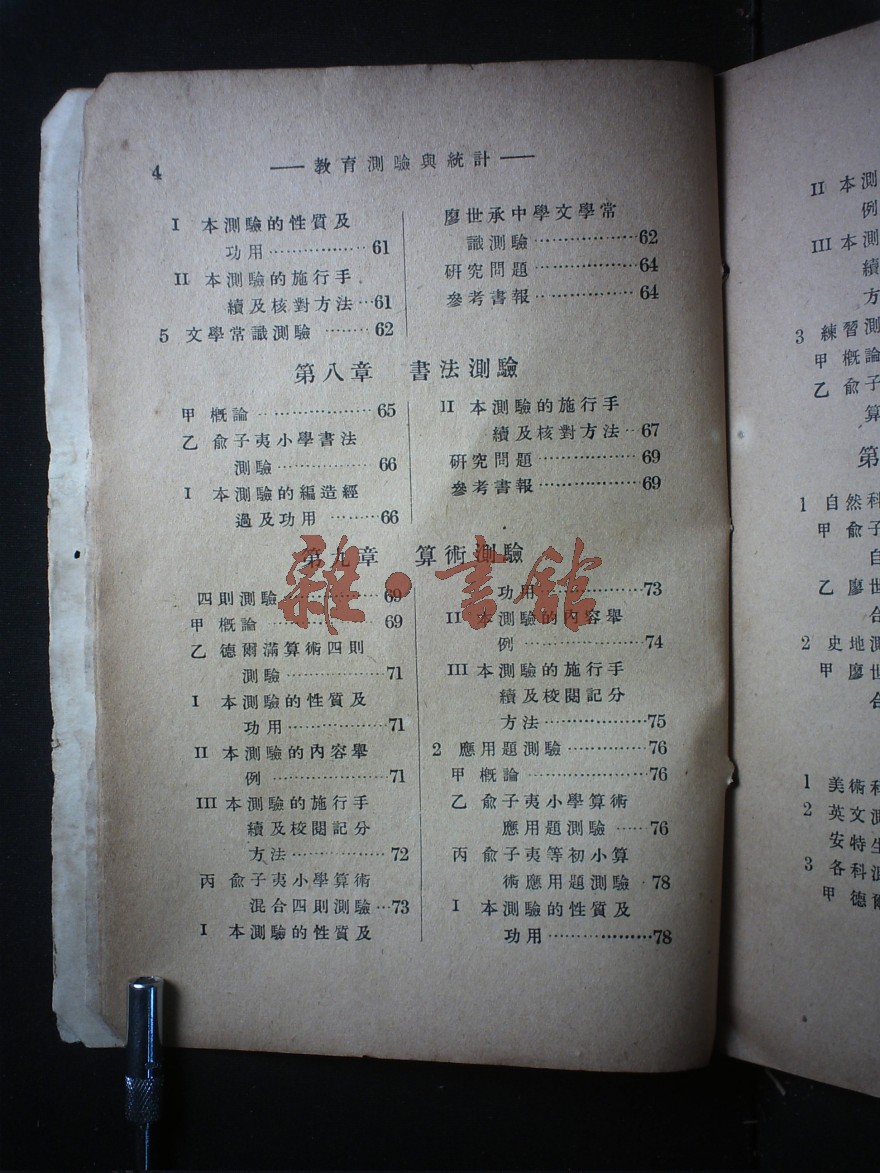 4
教育測驗與統計
I 本測驗的性質及
功用………………61
II 本測驗的施行手
續及核對方法…61
5 文學常識測驗………62
廖世承中學文學常
識測驗………………62
研究問題………………64
參考書報………………64
第八章 書法測驗
甲 概論…………………65
乙 俞子夷小學書法
測驗………………66
I 本測驗的編造經
過及功用………66
II 本測驗的施行手
續及核對方法…67
研究問題………………69
參考書報………………69
第九章 算術測驗
四則測驗………………69
甲 概論…………………69
乙 德爾滿算術四則
測驗………………71
I 本測驗的性質及
功用………………71
II 本測驗的內容舉
例…………………71
III 本測驗的施行手
續及校閱記分
方法………………72
丙 俞子夷小學算術
混合四則測驗…73
I 本測驗的性質及
功用………………73
II 本測驗的內容舉
例…………………74
III 本測驗的施行手
續及校閱記分
方法………………75
2 應用題測驗…………76
甲 概論…………………76
乙 俞子夷小學算術
應用題測驗……76
丙 俞子夷等初小算
術應用題測驗 78
I 本測驗的性質及
功用………………78
雜·書館
II 本測
例
III 本測
續
方
3 練習測
甲 概論
乙 俞子
算
第
1 自然科
甲 俞子
自
乙 廖世
合
2 史地測
甲 廖世
合
1 美術科
2 英文測
安特生
3 各科測
甲 德爾